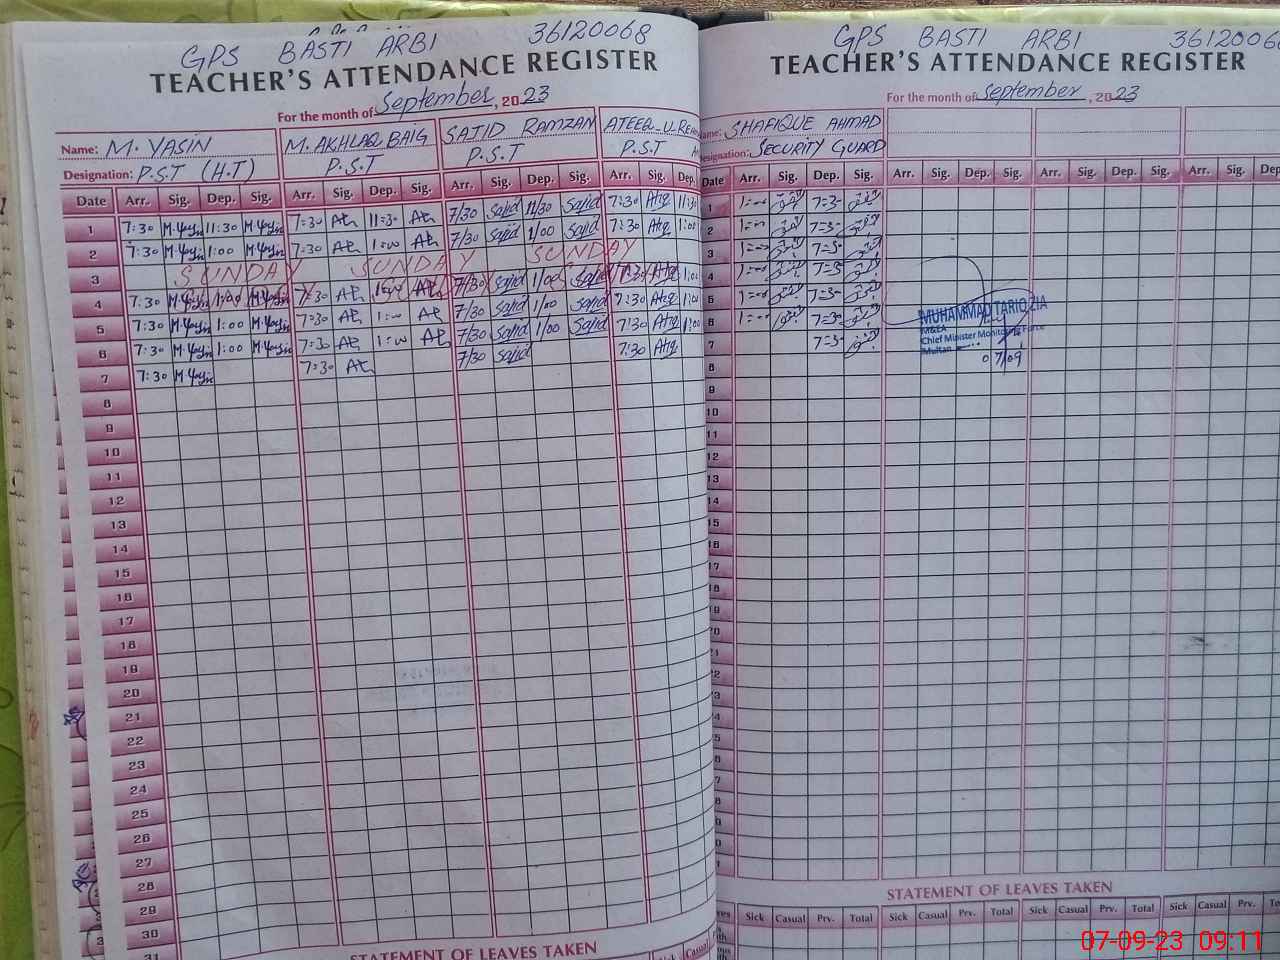 GPS BASTI ARBI 36120068
TEACHER'S ATTENDANCE REGISTER
For the month of September, 2023
Name: M. YASIN M. AKHLAQ BAIG SAJID RAMZAN ATEEQ_U_RE
Designation: P.S.T (H.T) P.S.T P.S.T P.S.T
Date Arr. Sig. Dep. Sig. Arr. Sig. Dep. Sig. Arr. Sig. Dep. Sig. Arr. Sig. Dep.
1 7:30 M.Yasin 11:30 M.Yasin 7:30 11:30 7/30 Sajid 11/30 Sajid 7:30 Atiq 11:30
2 7:30 M.Yasin 1:00 M.Yasin 7:30 1:00 7/30 Sajid 1/00 Sajid 7:30 Atiq 1:00
3 SUNDAY SUNDAY SUNDAY
4 7:30 M.Yasin 1:00 7:30 1:00 7/30 Sajid 1/00 Sajid 7:30 Atiq 1:00
5 7:30 M.Yasin 1:00 M.Yasin 7:30 1:00 7/30 Sajid 1/00 Sajid 7:30 Atiq 1:00
6 7:30 M.Yasin 1:00 M.Yasin 7:30 1:00 7/30 Sajid 1/00 Sajid 7:30 Atiq 1:00
7 7:30 M.Yasin 7:30 7/30 Sajid 7:30 Atiq
8
9
10
11
12
13
14
15
16
17
18
19
20
21
22
23
24
25
26
27
28
29
30
31
STATEMENT OF LEAVES TAKEN
Sick Casual
GPS BASTI ARBI 3612006
TEACHER'S ATTENDANCE REGISTER
For the month of September, 2023
Name: SHAFIQUE AHMAD
Designation: SECURITY GUARD
Date Arr. Sig. Dep. Sig. Arr. Sig. Dep. Sig. Arr. Sig. Dep. Sig. Arr. Sig. Dep
1 1:00 7:30
2 1:00 7:30
3 1:00 7:30
4 1:00 7:30
5 1:00 7:30
6 1:00 7:30
7 7:30
MUHAMMAD TARIQ ZIA
M&EA
Chief Minister Monitoring Force
Multan
07/09
8
9
10
11
12
13
14
15
16
17
18
19
STATEMENT OF LEAVES TAKEN
Sick Casual Prv. Total Sick Casual Prv. Total Sick Casual Prv. Total Sick Casual Prv.
07-09-23 09:11